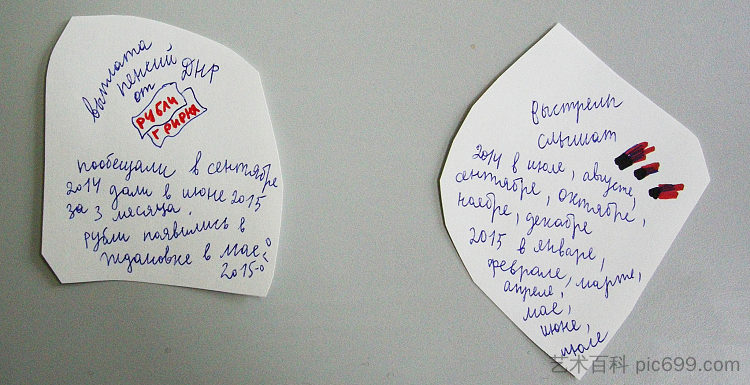 выплата
пенсий ДНР
от
рубли
гривна
пообещали в сентябре
2014 дали в июне 2015
за 3 месяца.
рубли появились в
Ждановке в мае
2015-о
выстрелы
слышат
2014 в июле, августе,
сентябре, октябре,
ноябре, декабре
2015 в январе,
феврале, марте,
апреле,
мае,
июне,
июле
艺术百科 pic699.com